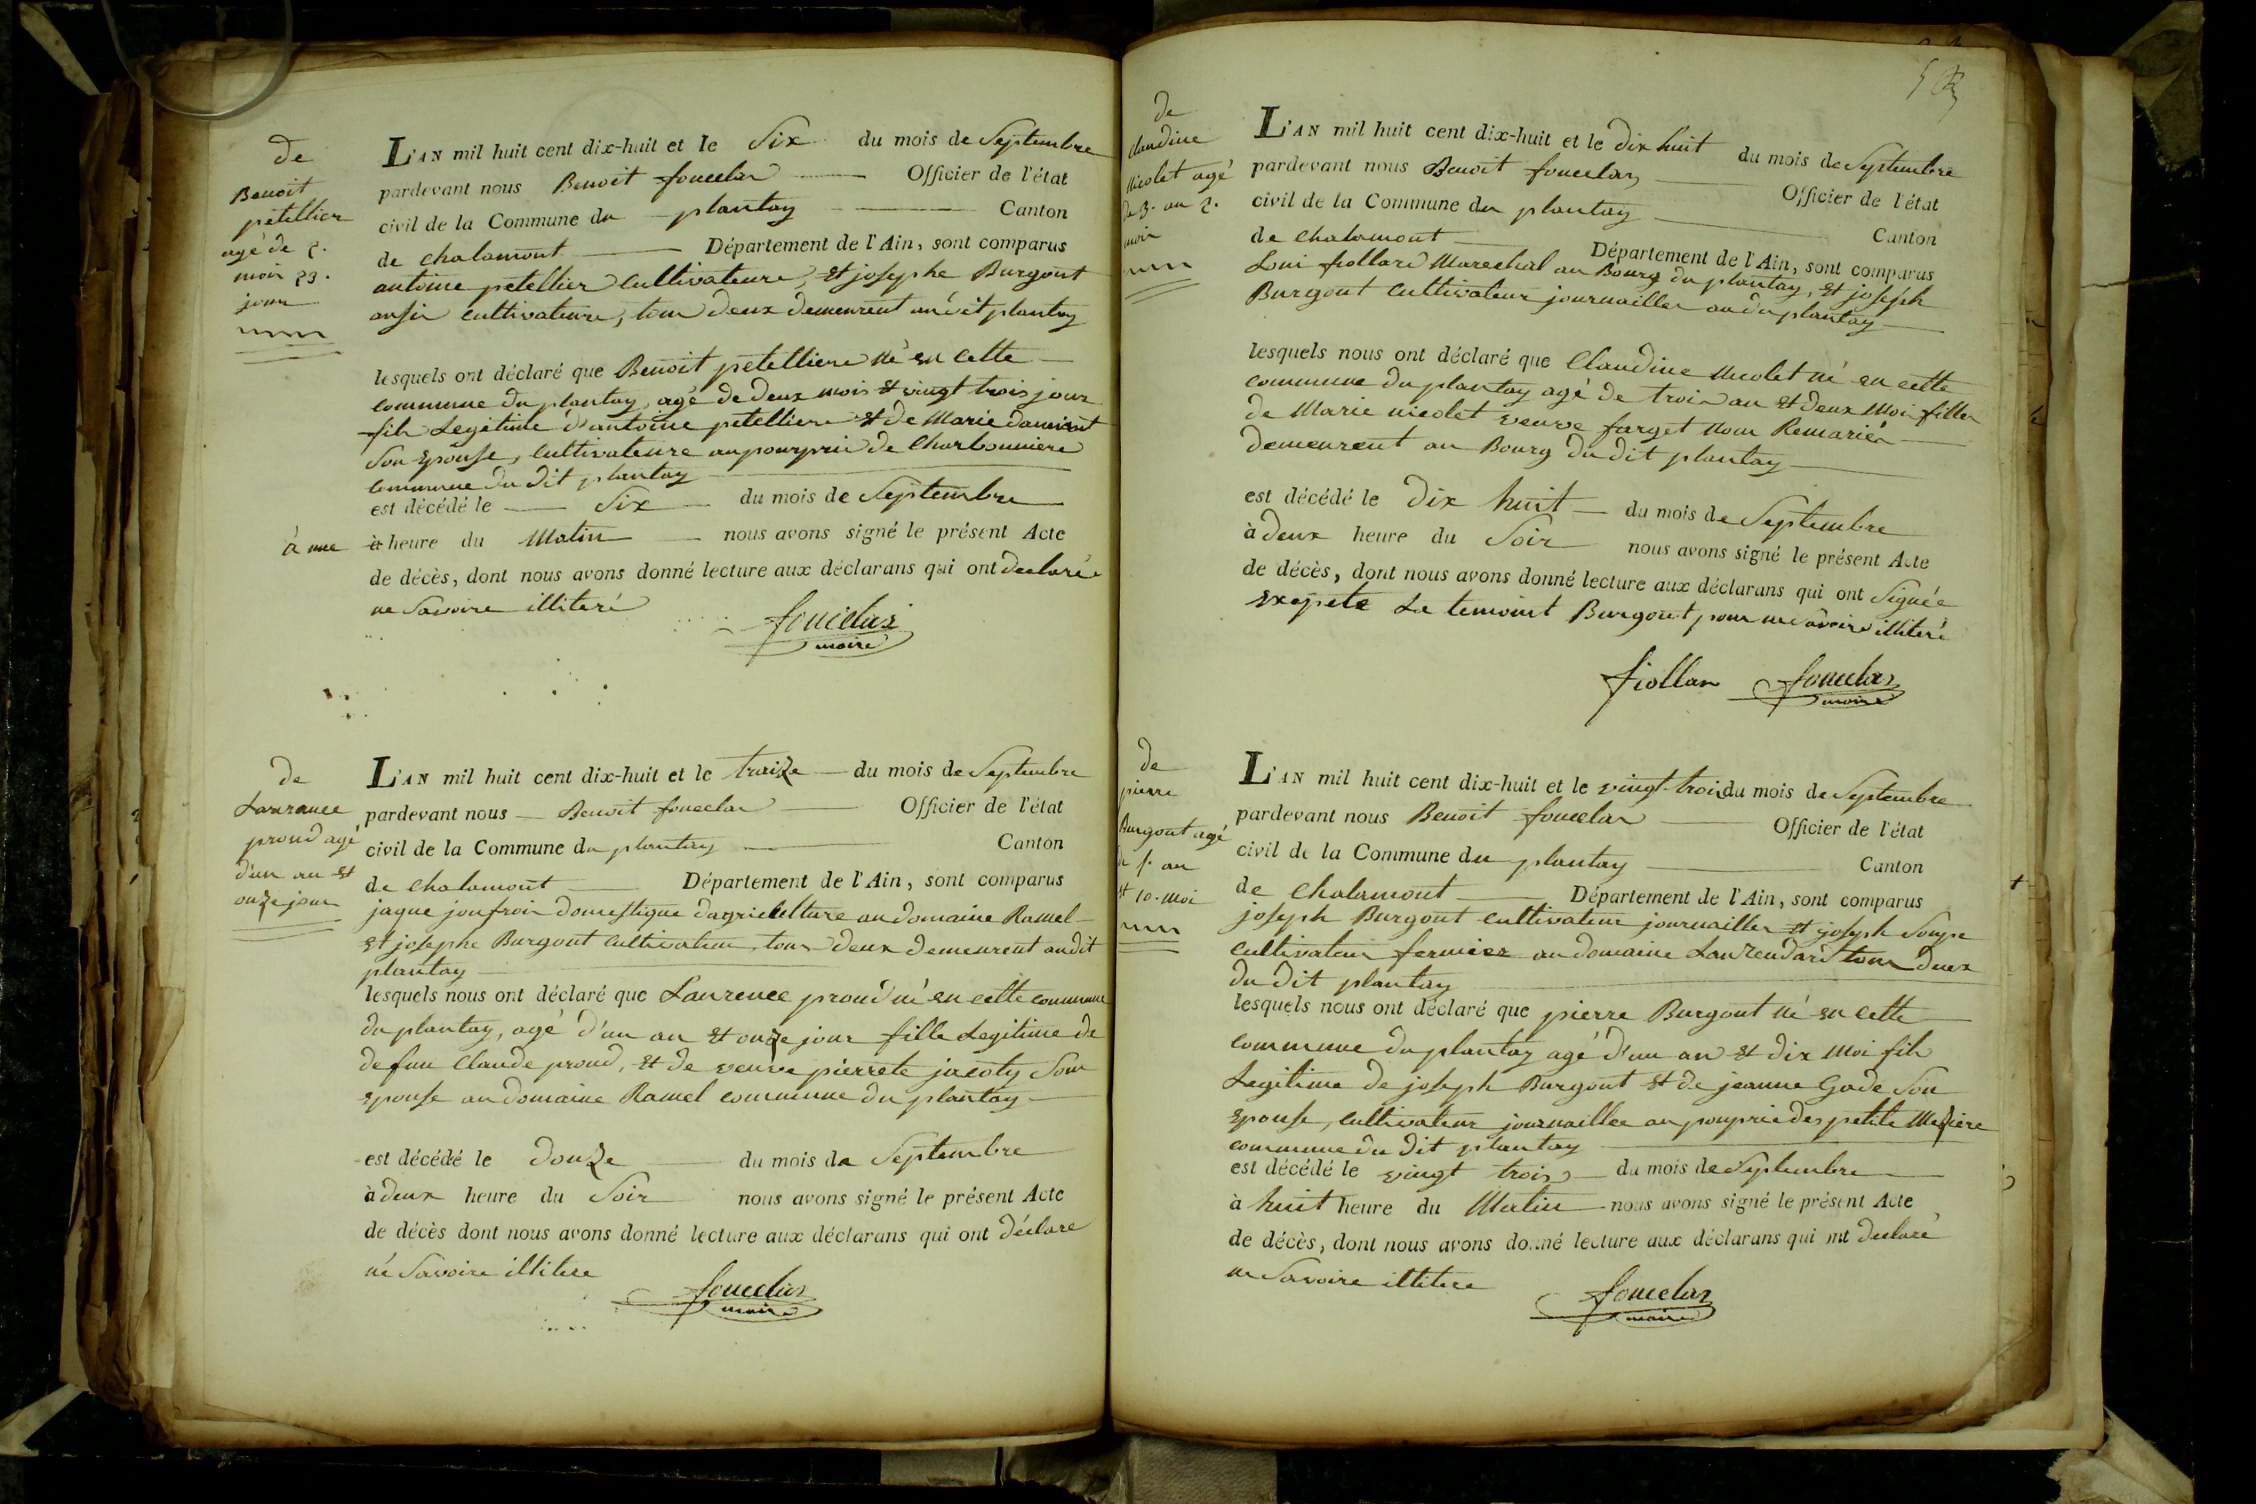 de
Benoit
petellier
agé de 2.
mois 23.
jour
L'AN mil huit cent dix-huit et le Six du mois de Septembre
pardevant nous Benoit foucelar Officier de l'état
civil de la Commune du plantay Canton
de chalamont Département de l'Ain, sont comparus
antoine petellier cultivateure, et josephe Burgout
ansin cultivateure, tous deux demeurent au dit plantay
lesquels ont déclaré que Benoit petelliere né en cette
commune du plantay, agé de deux mois et vingt trois jour
fils Legitime d'antoine petelliere et de Marie
Son Epouse, cultivateure au pourprie de Charbonniere
commune du dit plantay
est décédé le Six du mois de Septembre
à une à heure du Matin nous avons signé le présent Acte
de décès, dont nous avons donné lecture aux déclarans qui ont declaré
ne Savoire illiteré
fouclar
maire
de
Laurance
proud agé
d'un an et
onze jour
L'AN mil huit cent dix-huit et le traize du mois de Septembre
pardevant nous Benoit fouccelar Officier de l'état
civil de la Commune du plantay Canton
de chalamont Département de l'Ain, sont comparus
jaque joufroir domestique dagriculture au domaine Ramel
et josephe Burgout cultivateur, tous deux demeurent audit
plantay
lesquels nous ont déclaré que Laurence proud né en cette commune
du plantay, agé d'un an et onze jour fille Legitime de
defun Claude proud, et de veuve pierrete jacoty Son
Epouse au domaine Ramel commune du plantay
est décédé le douze du mois de Septembre
à deux heure du Soir nous avons signé le présent Acte
de décès dont nous avons donné lecture aux déclarans qui ont déclare
né Savoire illitere
fouclar
maire
de
claudine
Nicolet agé
de 3. an 2.
moir
L'AN mil huit cent dix-huit et le dix huit du mois de Septembre
pardevant nous Benoit fouccelar Officier de l'état
civil de la Commune du plantay Canton
de chalamont Département de l'Ain, sont comparus
Loui fiollard Marechal au Bourg du plantay, et joseph
Burgout cultivateur journaillier au du plantay
lesquels nous ont déclaré que Claudine Nicolet né en cette
commune du plantay agé de trois an et deux Moi filler
de Marie nicolet veuve farget nom Remarién
demeurent au Bourg du dit plantay
est décédé le dix huit du mois de Septembre
à deux heure du Soir nous avons signé le présent Acte
de décès, dont nous avons donné lecture aux déclarans qui ont Signée
Exepete Le temoint Burgout pour ne Savoire illiteré
fiollar fouclar
maire
de
pierre
Burgout agé
de 1. an
et 10. moi
L'AN mil huit cent dix-huit et le vingt-trois du mois de Septembre
pardevant nous Benoit fouccelar Officier de l'état
civil de la Commune du plantay Canton
de chalamont Département de l'Ain, sont comparus
joseph Burgout cultivateur journaillier et joseph Soupe
cultivateur fermier au domaine Lauzendard tous deux
du dit plantay
lesquels nous ont déclaré que pierre Burgout né en cette
commune du plantay agé d'un an et dix Moi fils
Legitime de joseph Burgout et de jeanne Gade Son
Epouse, cultivateur journaillee au pouprie des petite Meziere
commune du dit plantay
est décédé le vingt trois du mois de Septembre
à huit heure du Matin nous avons signé le présent Acte
de décès, dont nous avons donné lecture aux déclarans qui ont declaré
ne Savoire illitere
fouclar
maire